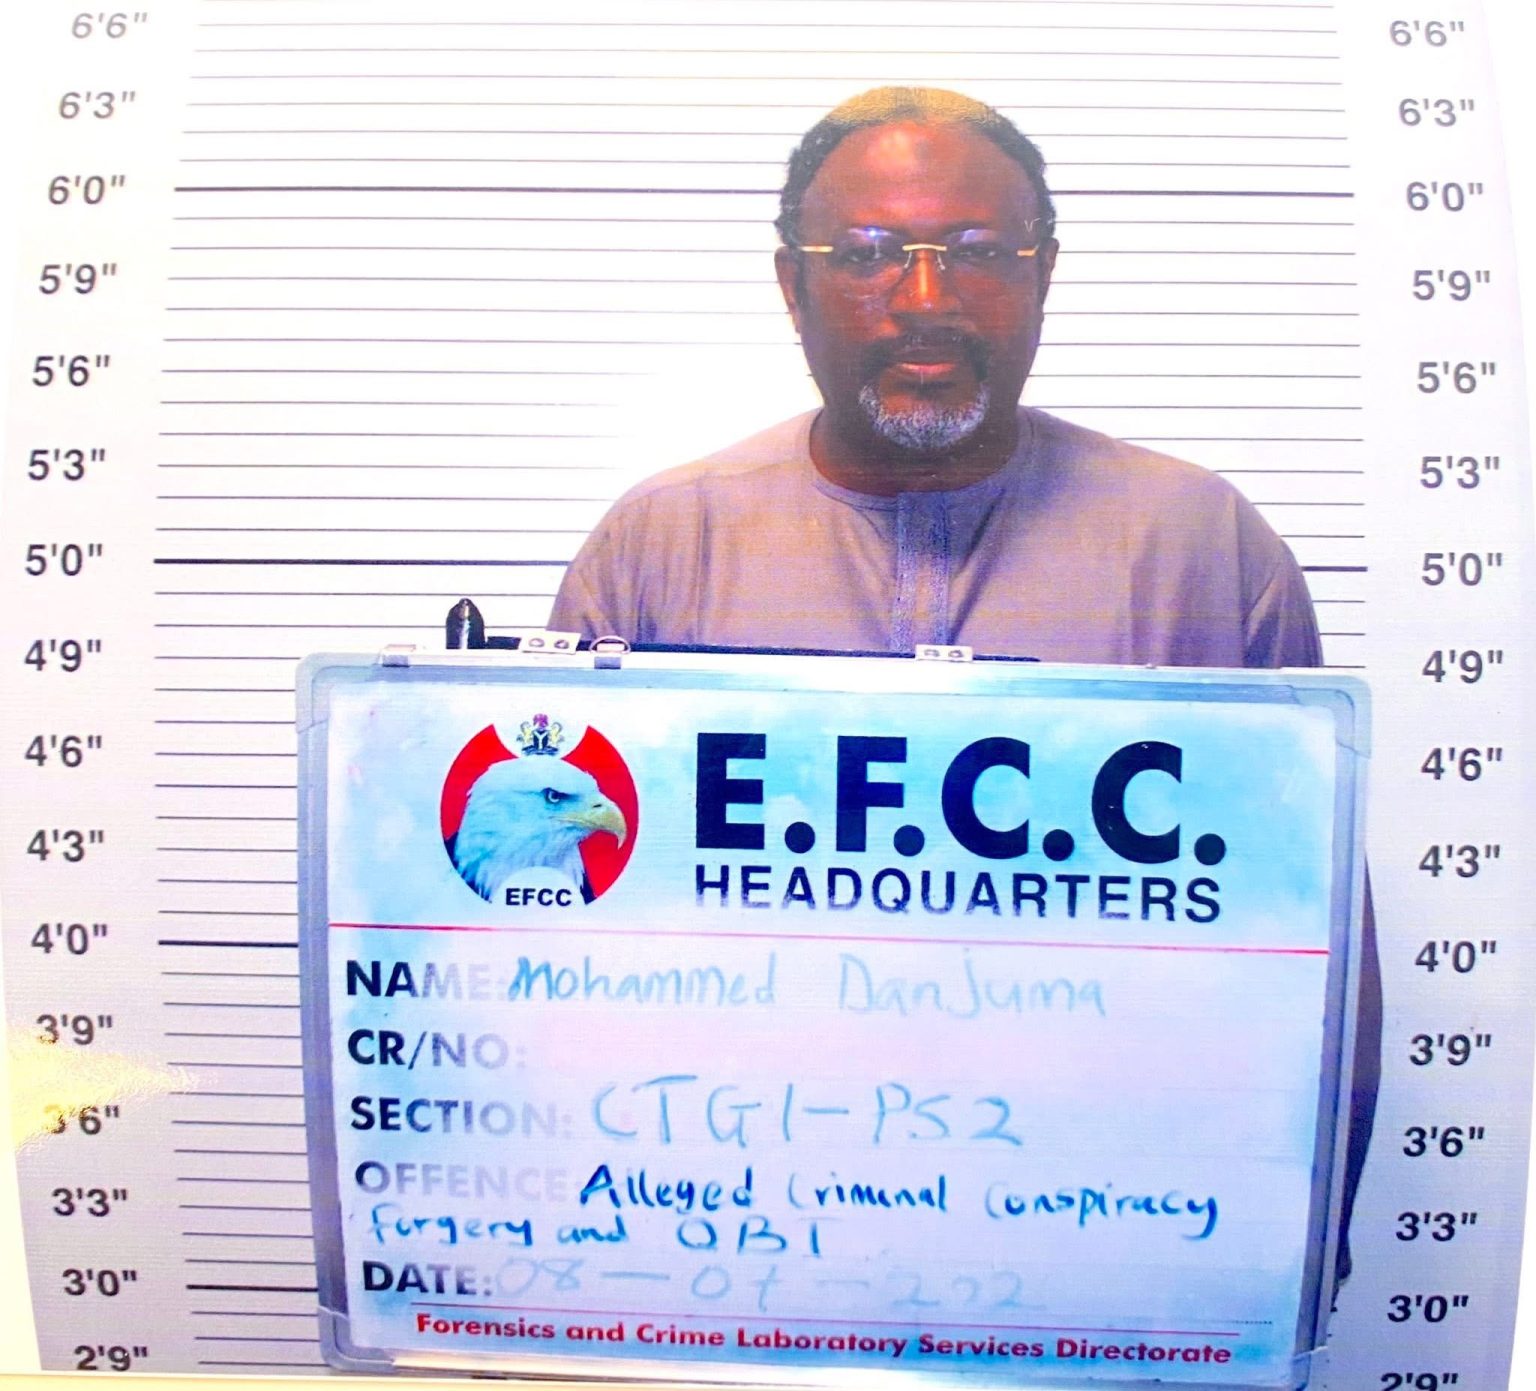 6'6" 6'6"
6'3" 6'3"
6'0" 6'0"
5'9" 5'9"
5'6" 5'6"
5'3" 5'3"
5'0" 5'0"
4'9" 4'9"
4'6" 4'6"
4'3" 4'3"
4'0" 4'0"
3'9" 3'9"
3'6" 3'6"
3'3" 3'3"
3'0" 3'0"
2'9" 2'9"
EFCC
E.F.C.C.
HEADQUARTERS
NAME: Mohammed Danjuma
CR/NO:
SECTION: CTG1-PS2
OFFENCE Alleged Criminal Conspiracy
Forgery and OBT
DATE: 08-07-
Forensics and Crime Laboratory Services Directorate